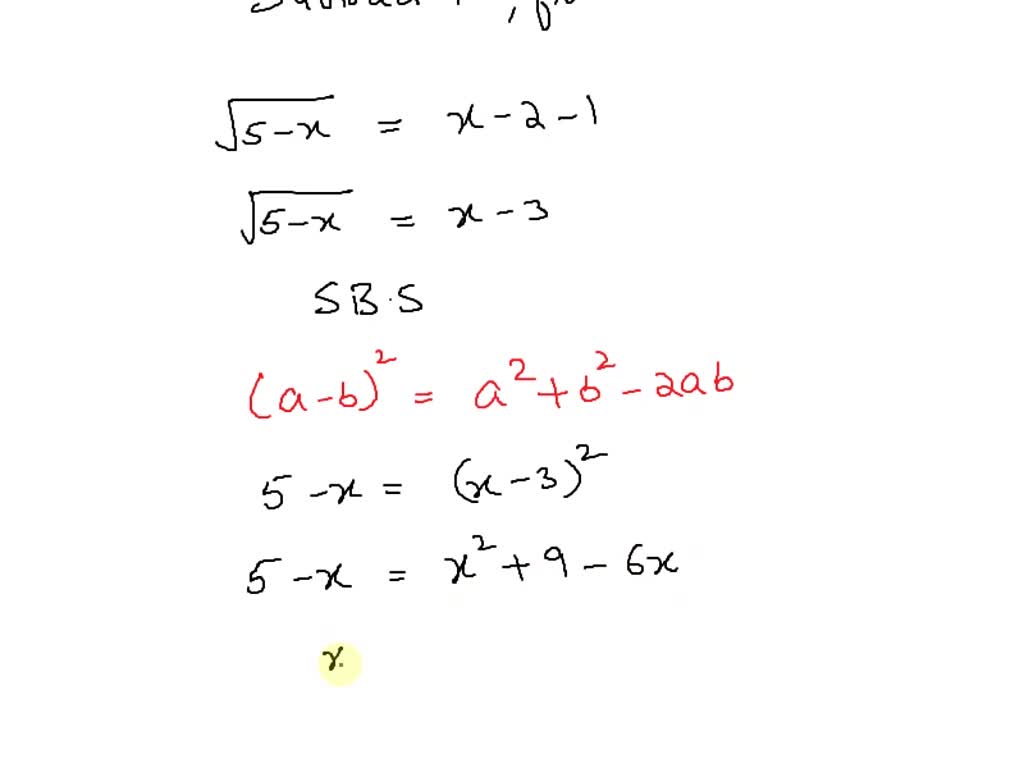 √5-x = x-2-1
√5-x = x-3
SB.S
(a-b)² = a²+b²-2ab
5-x = (x-3)²
5-x = x²+9-6x
x